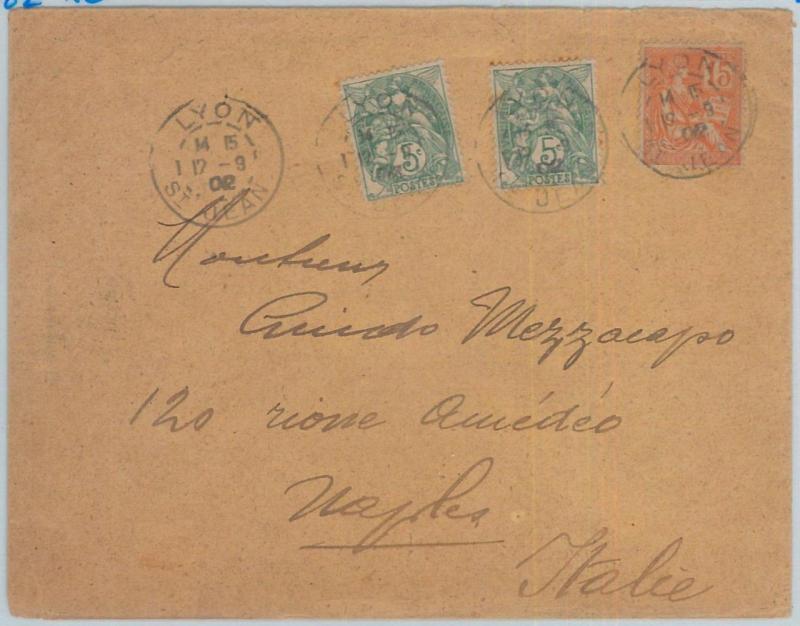 LYON
14 15
12 - 9
02
ST JEAN
5c
POSTES
5c
POSTES
15
LYON
14 15
12 - 9
02
Monsieur
Guido Mezzacapo
120 rione Amédéo
Naples
Italie